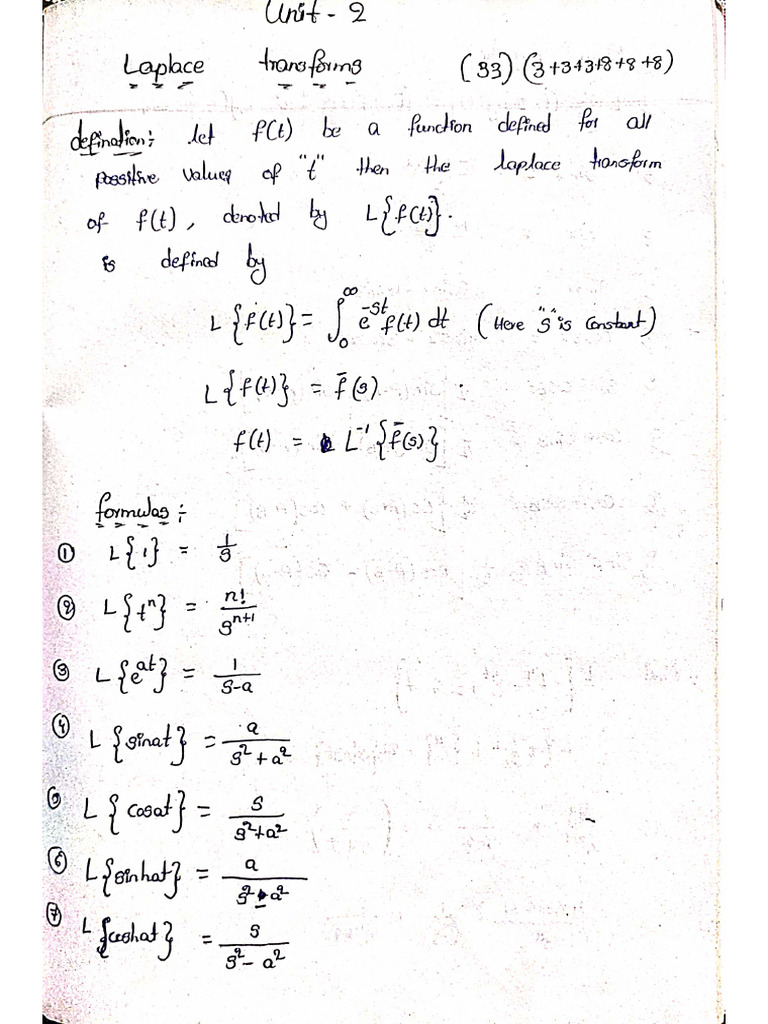 Unit - 2
Laplace transforms (33) (3+3+3+8+8+8)
defination:- let f(t) be a function defined for all
possitive values of "t" then the laplace transform
of f(t), denoted by L{f(t)}.
is defined by
L{f(t)} = ∫₀^∞ e^-st f(t) dt (Here "s" is constant)
L{f(t)} = f̄(s)
f(t) = L⁻¹{f̄(s)}
formulas:-
① L{1} = 1/s
② L{tⁿ} = n!/s^(n+1)
③ L{e^at} = 1/(s-a)
④ L{sinat} = a/(s²+a²)
⑤ L{cosat} = s/(s²+a²)
⑥ L{sinhat} = a/(s²-a²)
⑦ L{coshat} = s/(s²-a²)